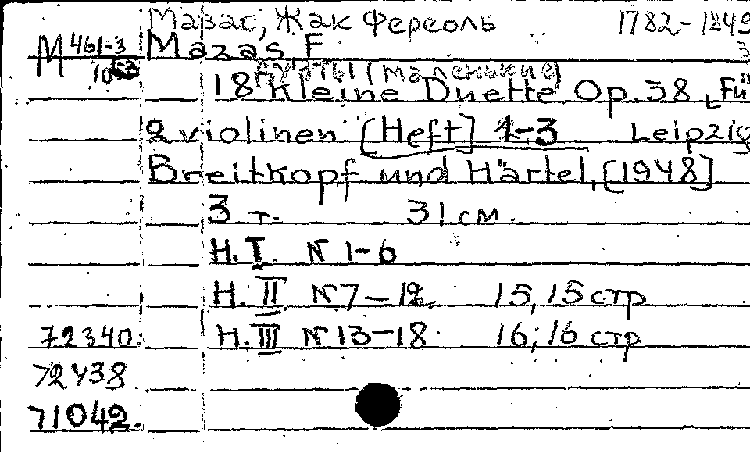 Мазас, Жак Фереоль 1782-1849
М 461-3 Mazas F. 3
дуэты (маленькие)
18 Kleine Duette Op. 38, Fü
2 violinen [Heft] 1-3 Leipzig
Breitkopf und Härtel, [1948]
3 т. 31 см.
H. I N 1-6
H. II N 7-12. 15, 15 стр
72340. H. III N 13-18. 16, 16 стр
72438
71042.